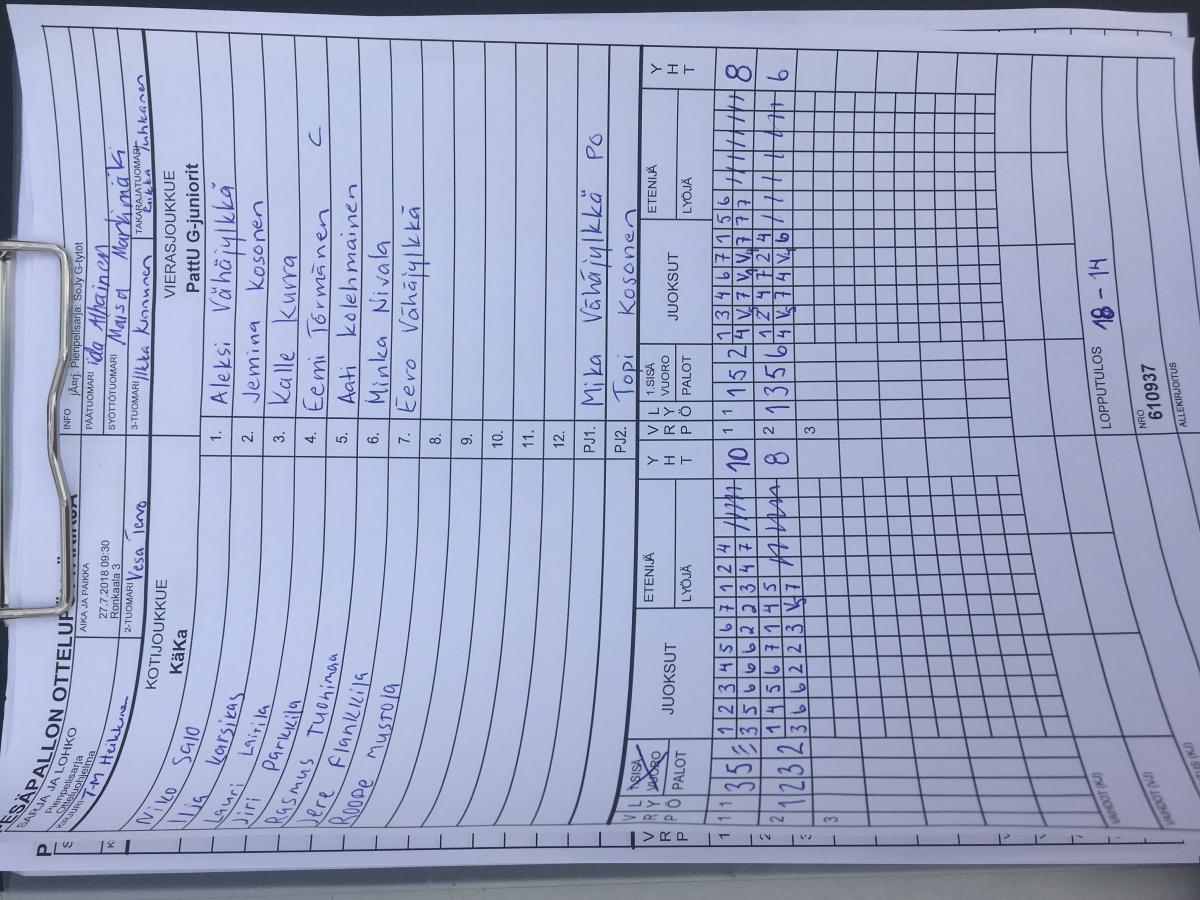 PESÄPALLON OTTELUPÖ
SARJA JA LOHKO
Pienpelisarja
Otteluohjelma
KIRJURI T-M Heikkinen
AIKA JA PAIKKA
27.7.2018 09:30
Ronkaala 3
2-TUOMARI Vesa Tervo
INFO järj. Pienpelisarja: SoJy G-tytöt
PÄÄTUOMARI Iida Alhainen
SYÖTTÖTUOMARI Maisa Markimäki
3-TUOMARI Ilkka Kinnunen
TAKARAJATUOMARI
KOTIJOUKKUE
KäKa
Niko Salo
Ilja
Lauri Karsikas
Jiri Laitila
Parkkila
Rasmus Tuohimaa
Jere Flankkila
Roope Mustola
VIERASJOUKKUE
PattU G-juniorit
1. Aleksi Vähäjylkkä
2. Jemina Kosonen
3. Kalle Kurra
4. Eemi Törmänen C
5. Aati Kolehmainen
6. Minka Nivala
7. Eero Vähäjylkkä
8.
9.
10.
11.
12.
PJ1. Mika Vähäjylkkä PO
PJ2. Topi Kosonen
V L 1.SISÄ JUOKSUT ETENIJÄ Y
R Y VUORO H
P Ö PALOT LYÖJÄ T
1 1 3 5 1 2 3 4 5 6 7 1 2 4 10
3 5 6 6 6 2 2 3 4 7
2 1 2 3 2 1 4 5 6 7 1 4 5 8
3 6 6 2 2 3
3
V L 1.SISÄ JUOKSUT ETENIJÄ Y
R Y VUORO H
P Ö PALOT LYÖJÄ T
1 1 1 5 2 1 3 4 6 7 1 5 6 8
2 1 3 5 6 1 2 4 7 2 4 6
3
LOPPUTULOS 18 - 14
NRO
610937
ALLEKIRJOITUS
VAIHDOT (KJ)
VAIHDOT (VJ)